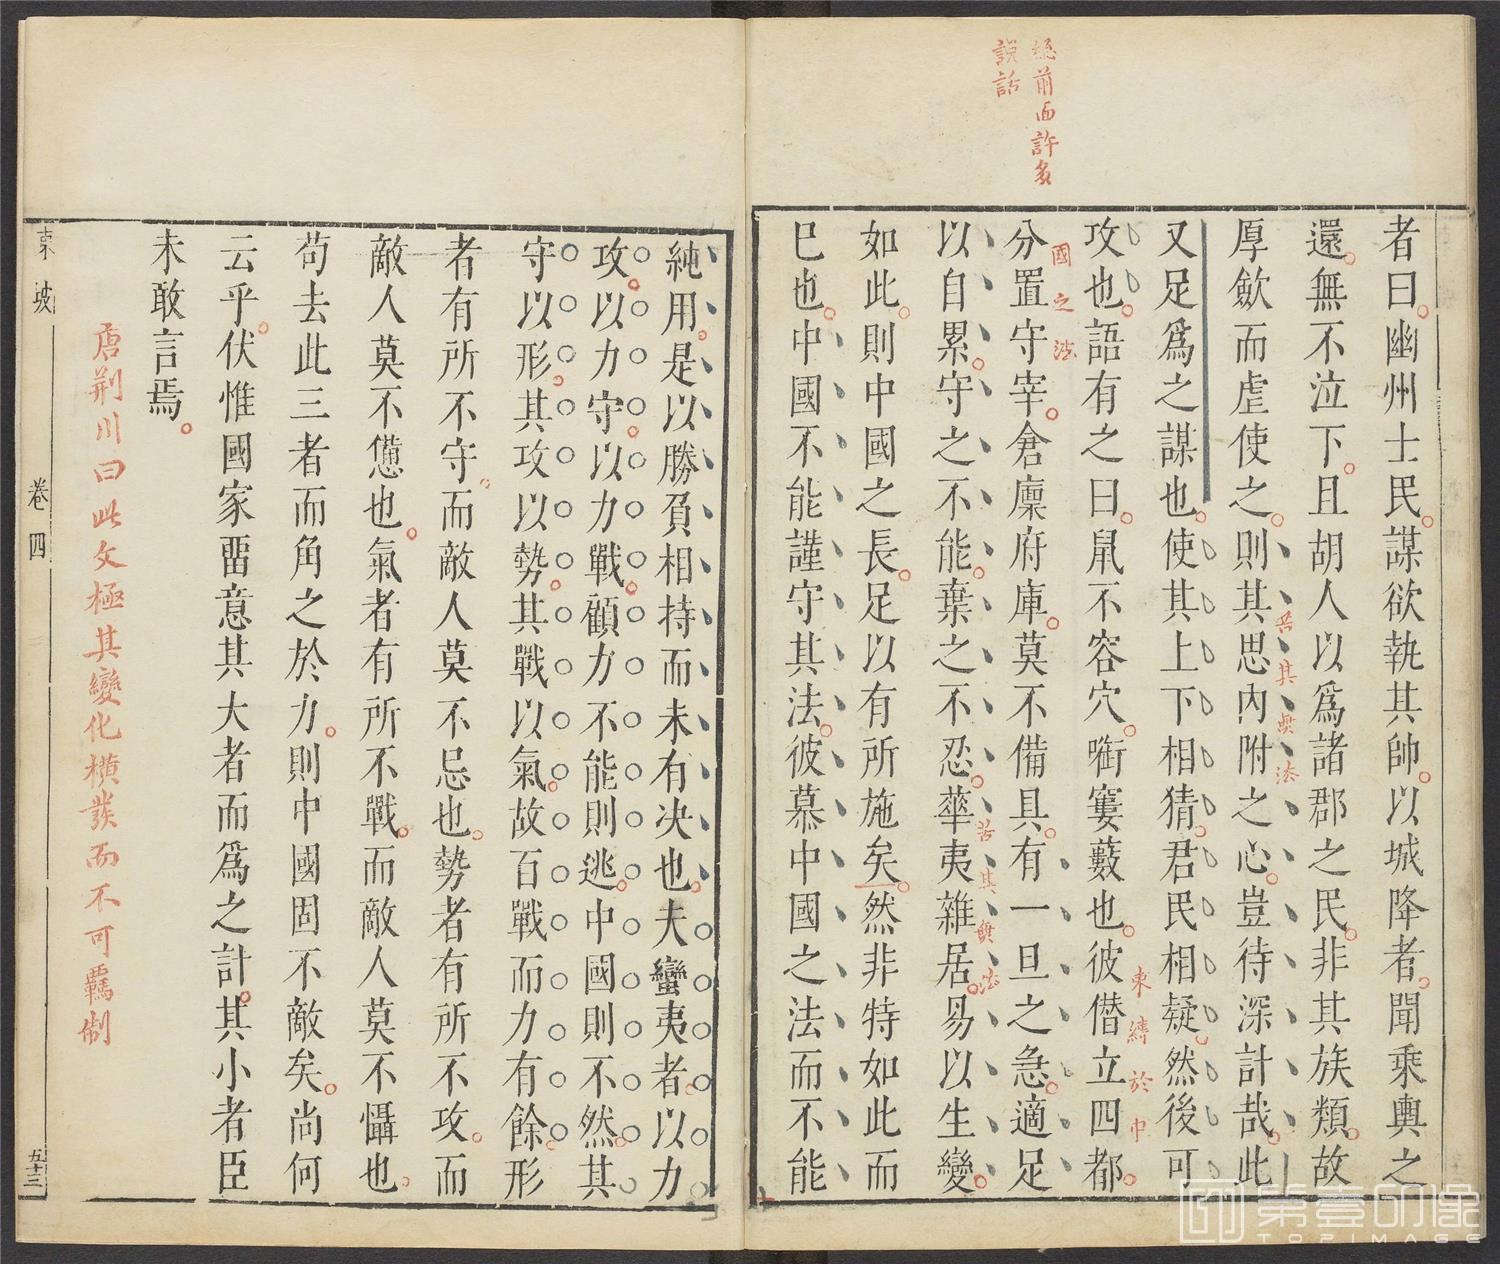 總前面許多
說話
者曰。幽州士民。謀欲執其帥。以城降者。聞乘輿之
還。無不泣下。且胡人以爲諸郡之民。非其族類。故
厚斂而虐使之。則其思內附之心。豈待深計哉。此
苦其契法
又足爲之謀也。使其上下相猜。君民相疑。然後可
攻也。語有之曰。鼠不容穴。銜窶藪也。彼僣立四都。
束縛於中
國之法
分置守宰。倉廩府庫。莫不備具。有一旦之急。適足
以自累。守之不能。棄之不忍。華夷雜居。易以生變。
苦其契法
如此。則中國之長。足以有所施矣。然非特如此而
巳也。中國不能謹守其法。彼慕中國之法而不能
純用。是以勝負相持而未有决也。夫蠻夷者。以力
攻。以力守。以力戰。顧力不能則逃。中國則不然。其
守以形。其攻以勢。其戰以氣。故百戰而力有餘。形
者有所不守。而敵人莫不忌也。勢者有所不攻。而
敵人莫不憊也。氣者有所不戰。而敵人莫不懾也。
苟去此三者而角之於力。則中國固不敵矣。尚何
云乎。伏惟國家畱意其大者而爲之計。其小者臣
未敢言焉。
唐荊川曰此文極其變化橫發而不可羈制
東坡
卷四
五十三
第壹印像
TOPIMAGE